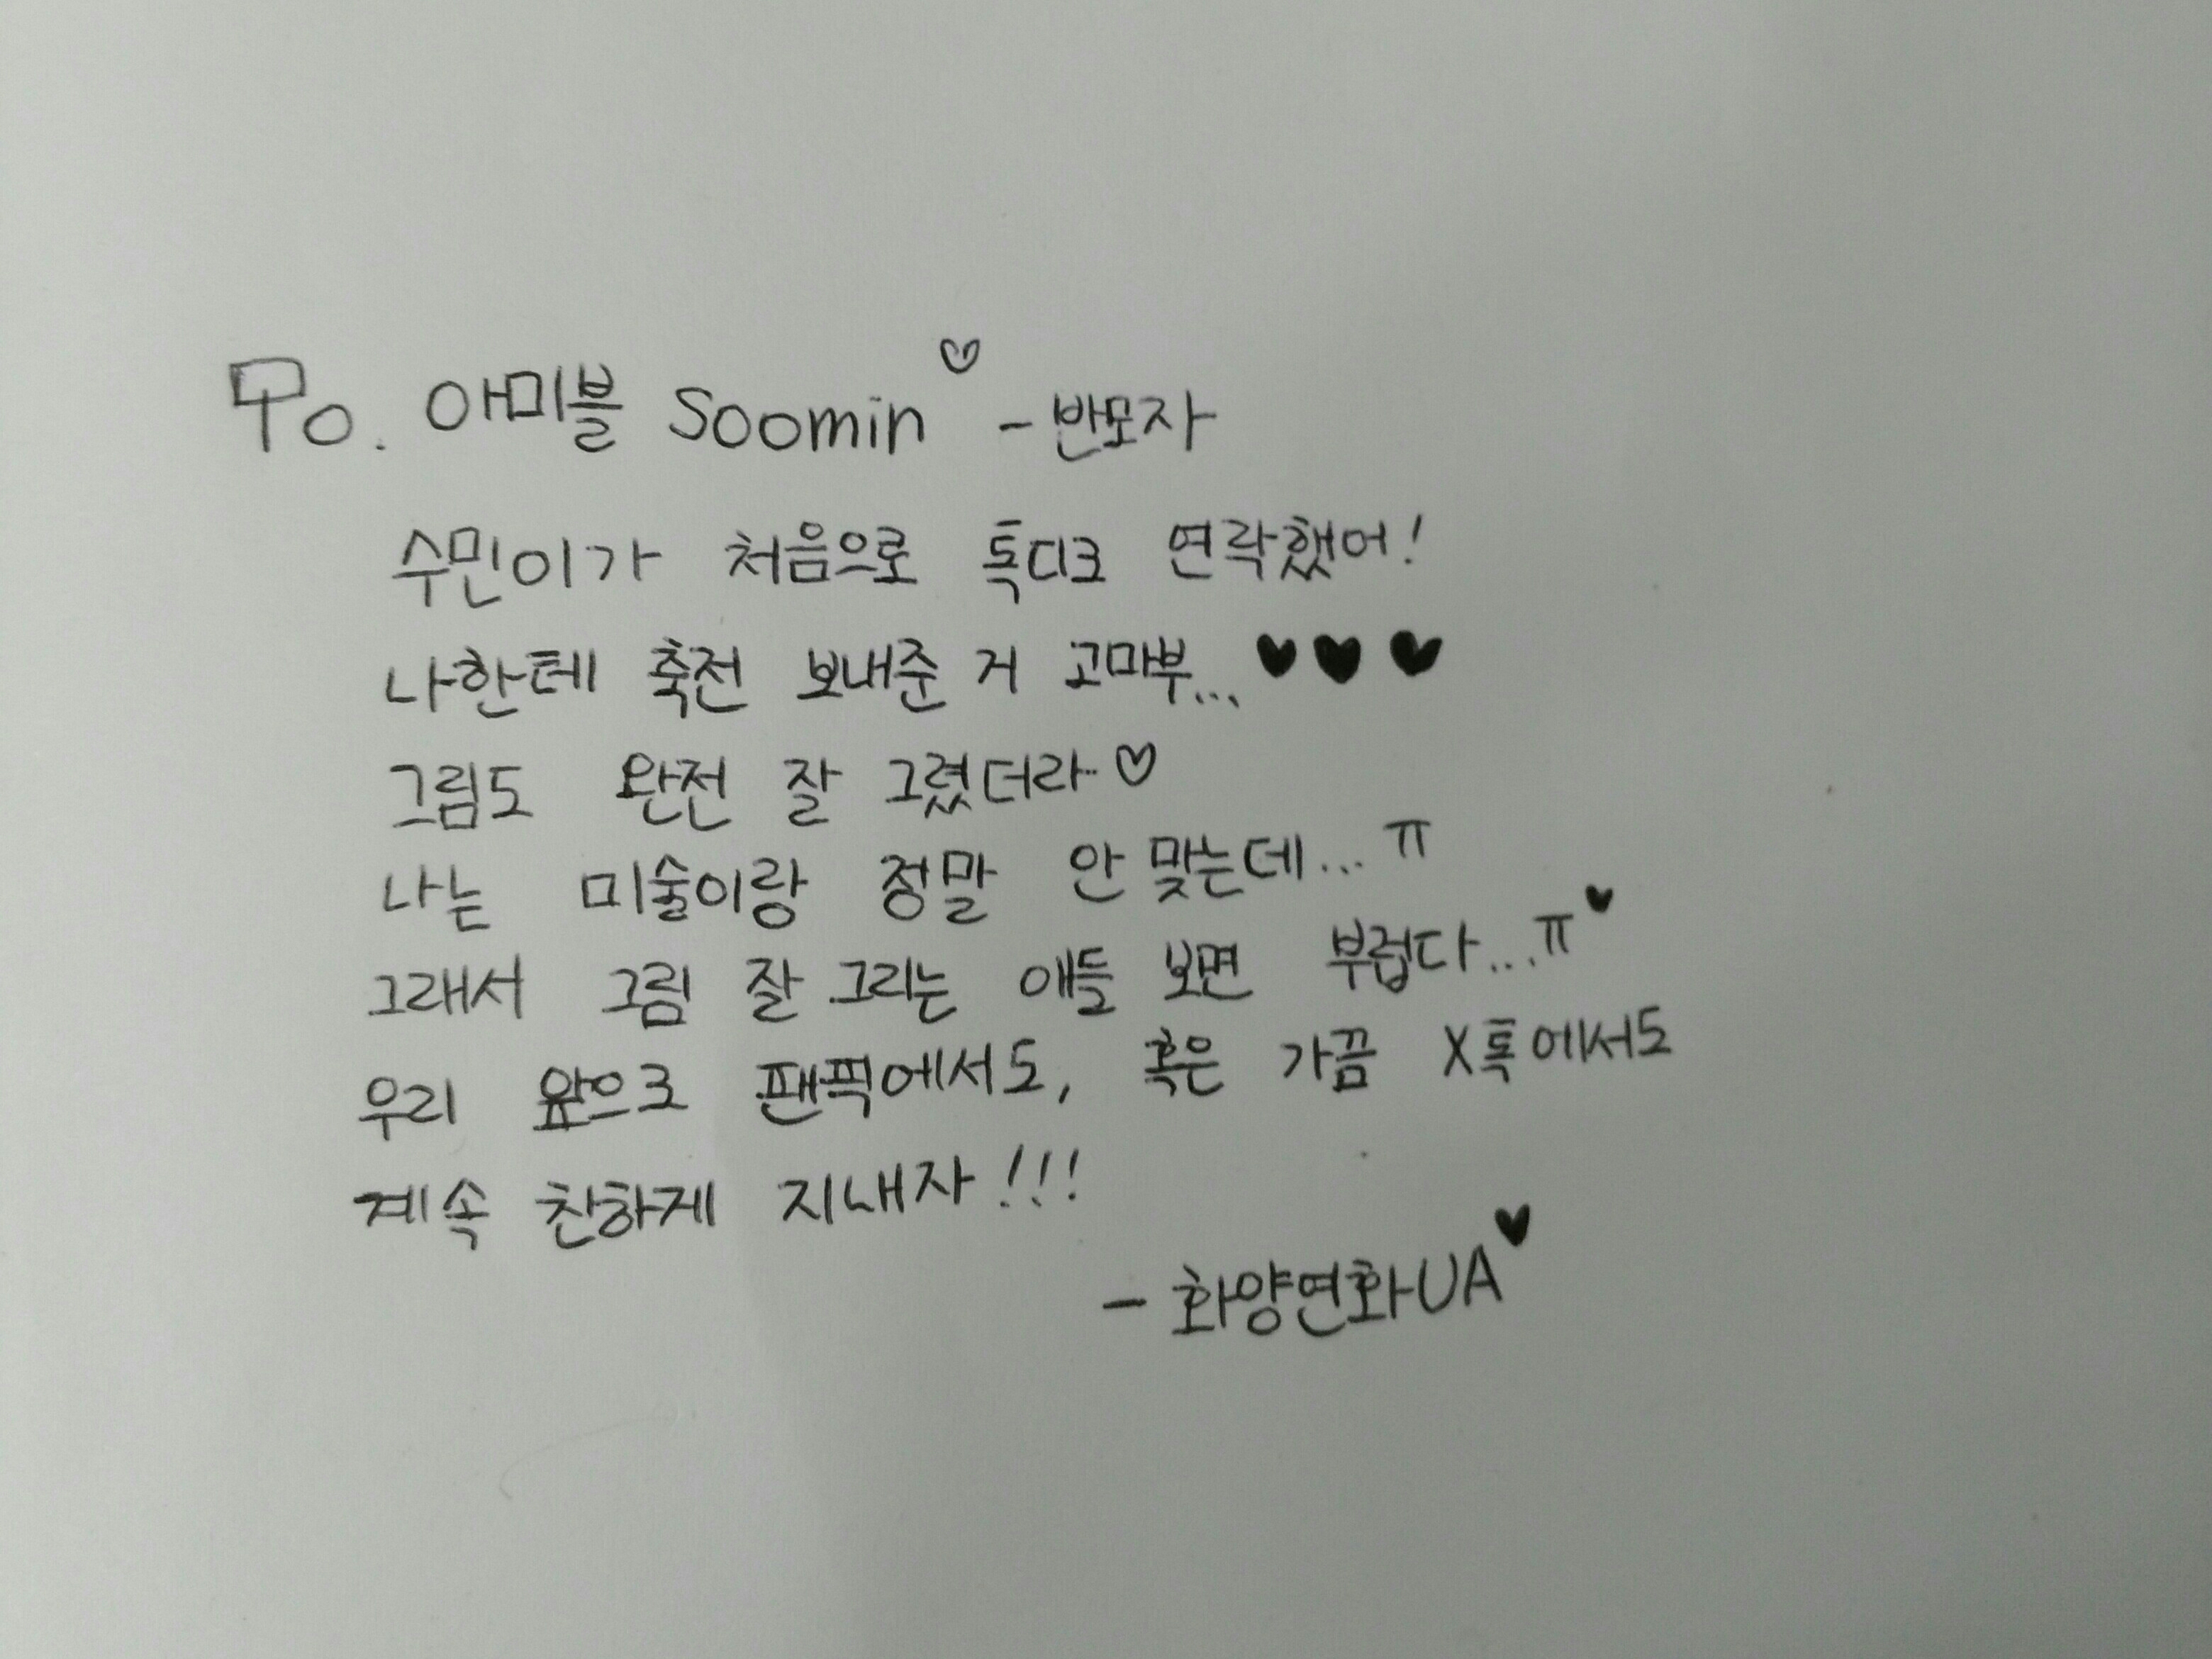 To. 아미블 Soomin♡ - 반모자
수민이가 처음으로 톡디크 연락했어!
나한테 축전 보내준 거 고마부...♥♥♥
그림도 완전 잘 그렸더라♡
나는 미술이랑 정말 안 맞는데...ㅠ
그래서 그림 잘 그리는 애들 보면 부럽다...ㅠ♥
우리 앞으로 팬픽에서도, 혹은 가끔 X톡에서도
계속 친하게 지내자!!!
- 화양연화UA♥